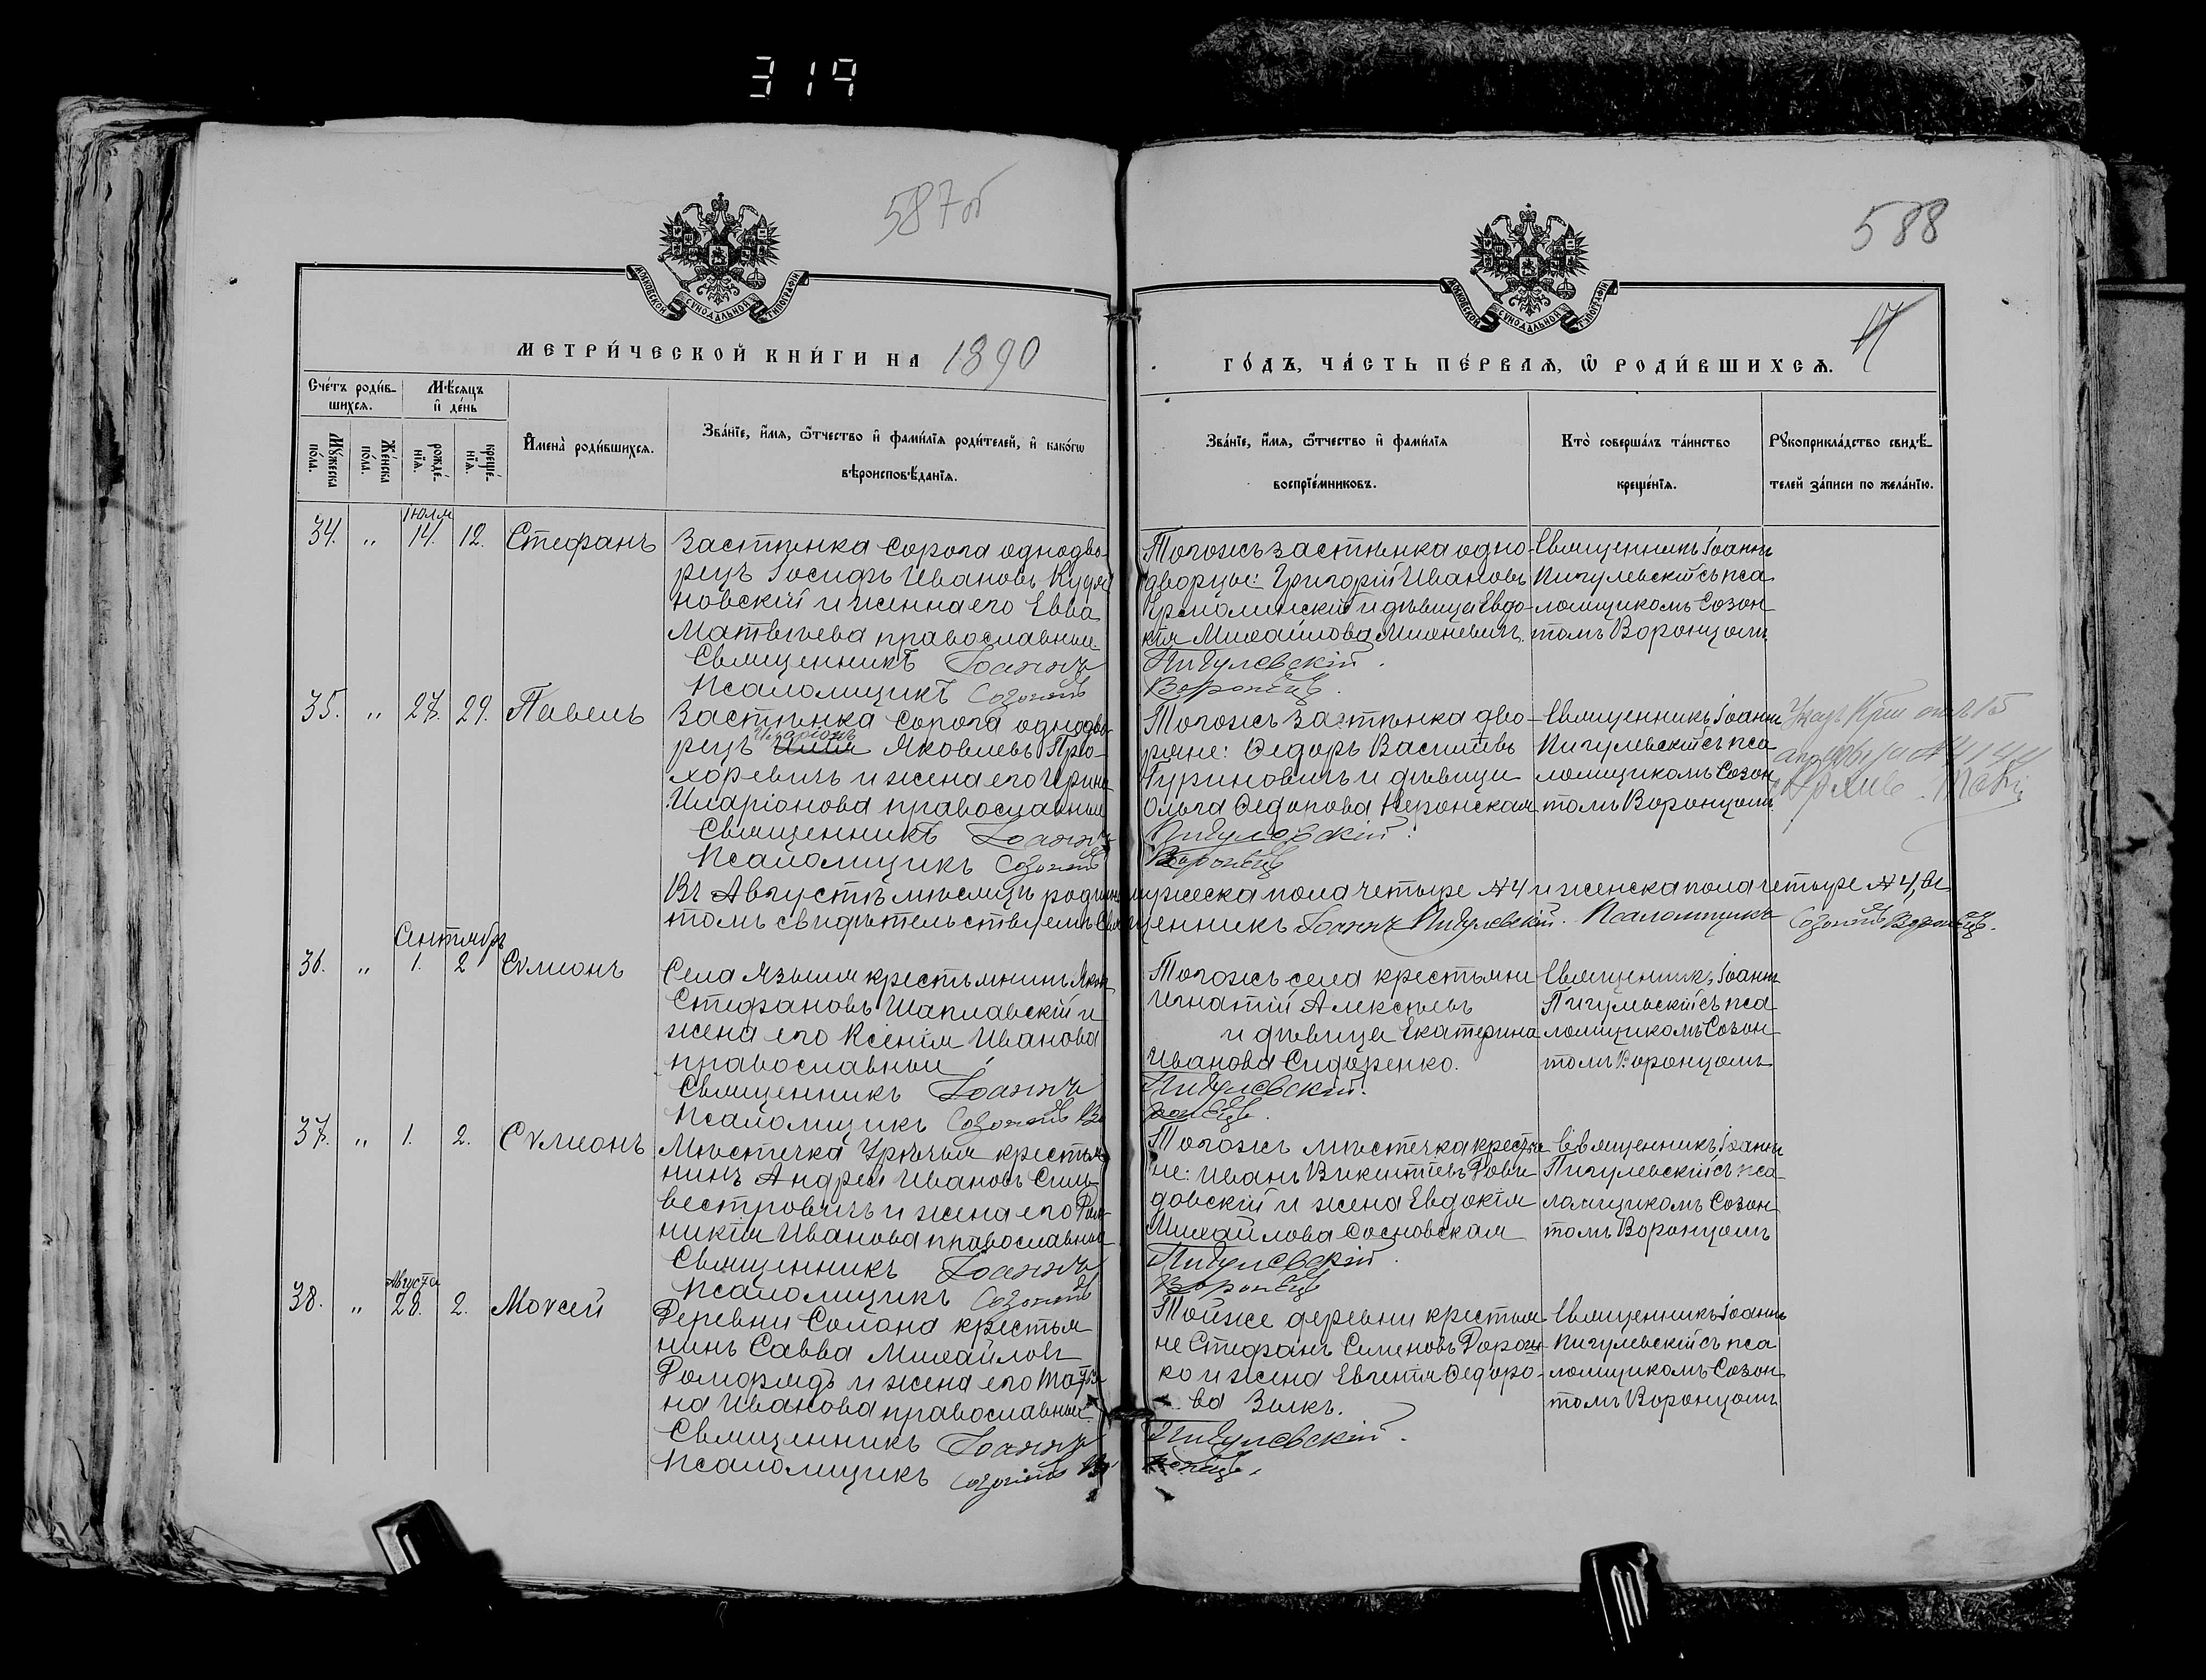 319
587об
588
МОСКОВСКОЙ СУНОДАЛЬНОЙ ТИПОГРАФІИ
МОСКОВСКОЙ СУНОДАЛЬНОЙ ТИПОГРАФІИ
МЕТРИ́ЧЕСКОЙ КНИ́ГИ НА 1890
ГО́ДЪ, ЧА́СТЬ ПЕ́РВАѦ, Ѡ РОДИ́ВШИХСѦ.
17
Сче́тъ роди́в-
шихсѧ.
Мѣ́сѧцъ
и҆ де́нь
Мꙋ́жеска по́ла.
Же́нска по́ла.
рожде́-нїѧ.
креще́-нїѧ.
И҆мена̀ роди́вшихсѧ.
Зва́нїе, и҆́мѧ, ѻ҆́тчество и҆ фами́лїѧ роди́телей, и҆ како́гѡ
вѣроисповѣ́данїѧ.
Зва́нїе, и҆́мѧ, ѻ҆́тчество и҆ фами́лїѧ
воспрїе́мниковъ.
Кто̀ соверша́лъ та́инство
креще́нїѧ.
Рꙋкоприкла́дство свидѣ́-
телей за́писи по жела́нїю.
Іюля
34. " 14. 12. Стефанъ
Застѣнка Сорога однодво-
рецъ Іосифъ Ивановъ
новскій и женна его Евва
Матвѣева православные.
Священникъ Іоаннъ Пигулевскій.
Псаломщикъ Созонтъ Воронецъ.
Тогожъ застѣнка одно-
дворцы: Григорій Ивановъ
Ермолинскій и дѣвица Евдо-
кія Михайлова
Священникъ Іоаннъ
Пигулевскій съ пса
ломщикомъ Созон
томъ Воронцомъ
35. " 27. 29. Павелъ
Застѣнка Сорога однодво-
рецъ Иларіонъ Яковлевъ Про-
хоревичъ и жена его Ирина
Иларіонова православные
Священникъ Іоаннъ Пигулевскій.
Псаломщикъ Созонтъ Воронецъ
Тогожъ застѣнка дво-
ряне: Ѳедоръ Василіевъ
Гуриновичъ и дѣвица
Ольга Ѳедорова Неронская
Священникъ Іоаннъ
Пигулевскій съ пса
ломщикомъ Созон
томъ Воронцомъ
Въ Августѣ мѣсяцѣ родившихся мужеска пола четыре №4 и женска пола четыре №4, въ
томъ свидѣтельствуемъ Священникъ Іоаннъ Пигулевскій. Псаломщикъ Созонтъ Воронецъ.
Сентябрь
36. " 1. 2 Сѵмеонъ
Села Языля крестьянинъ Яковъ
Стефановъ Шаплавскій и
жена его Ксенія Иванова
православные
Священникъ Іоаннъ Пигулевскій.
Псаломщикъ Созонтъ Воронецъ.
Тогожъ села крестьяни
Игнатій Алексѣевъ
и дѣвица Екатерина
Иванова Сидоренко.
Священникъ Іоаннъ
Пигулевскій съ пса
ломщикомъ Созон
томъ Воронцомъ
37. " 1. 2. Сѵмеонъ
Мѣстечка Урѣчья крестья
нинъ Андрей Ивановъ Силь-
вестровичъ и жена его
Иванова православные
Священникъ Іоаннъ Пигулевскій.
Псаломщикъ Созонтъ Воронецъ
Тогожъ мѣстечка крестья
не: Иванъ Викентіевъ
довскій и жена Евдокія
Михайлова Сосновская
Священникъ Іоаннъ
Пигулевскій съ пса-
ломщикомъ Созон
томъ Воронцомъ
Августа
38. " 28. 2. Моѵсей
Деревни Солона крестья
нинъ Савва Михайловъ
и жена его Татья
на Иванова православные.
Священникъ Іоаннъ Пигулевскій.
Псаломщикъ Созонтъ Воронецъ.
Тойже деревни крестья
не Стефанъ Семеновъ
ко и жена Евгенія Ѳедоро-
ва Зыкъ.
Священникъ Іоаннъ
Пигулевскій съ пса
ломщикомъ Созон
томъ Воронцомъ